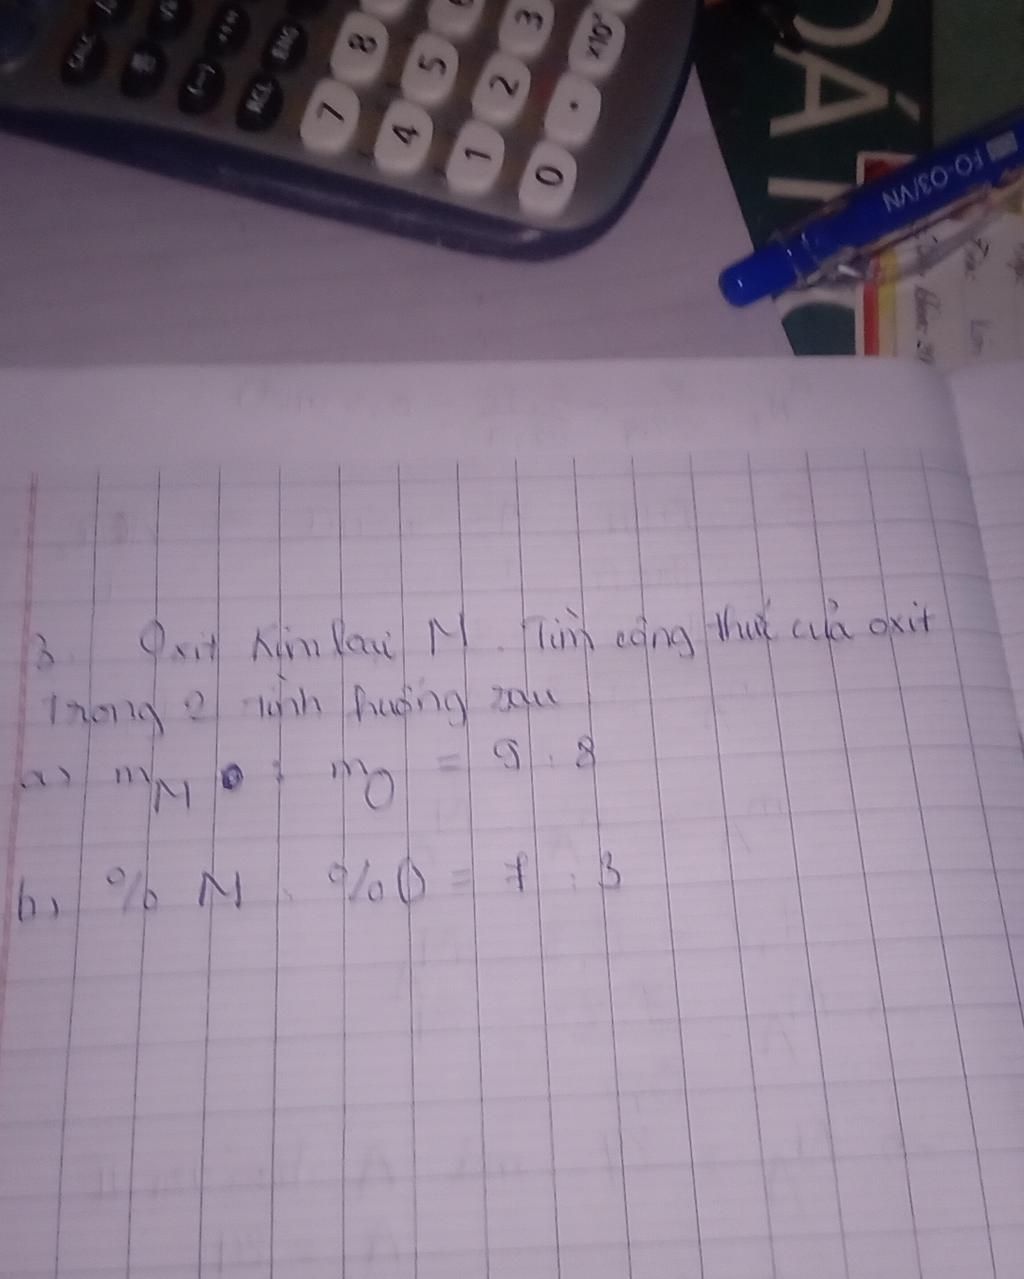 CALC
(-)
RCL
ENG
7 8
4 5
1 2 3
0 . ×10ˣ
FO-03/VN
3. Oxit kim loại M. Tìm công thức của oxit
Trong 2 tình huống sau
a) mM : mO = 9 : 8
b, % M : %O = 7 : 3